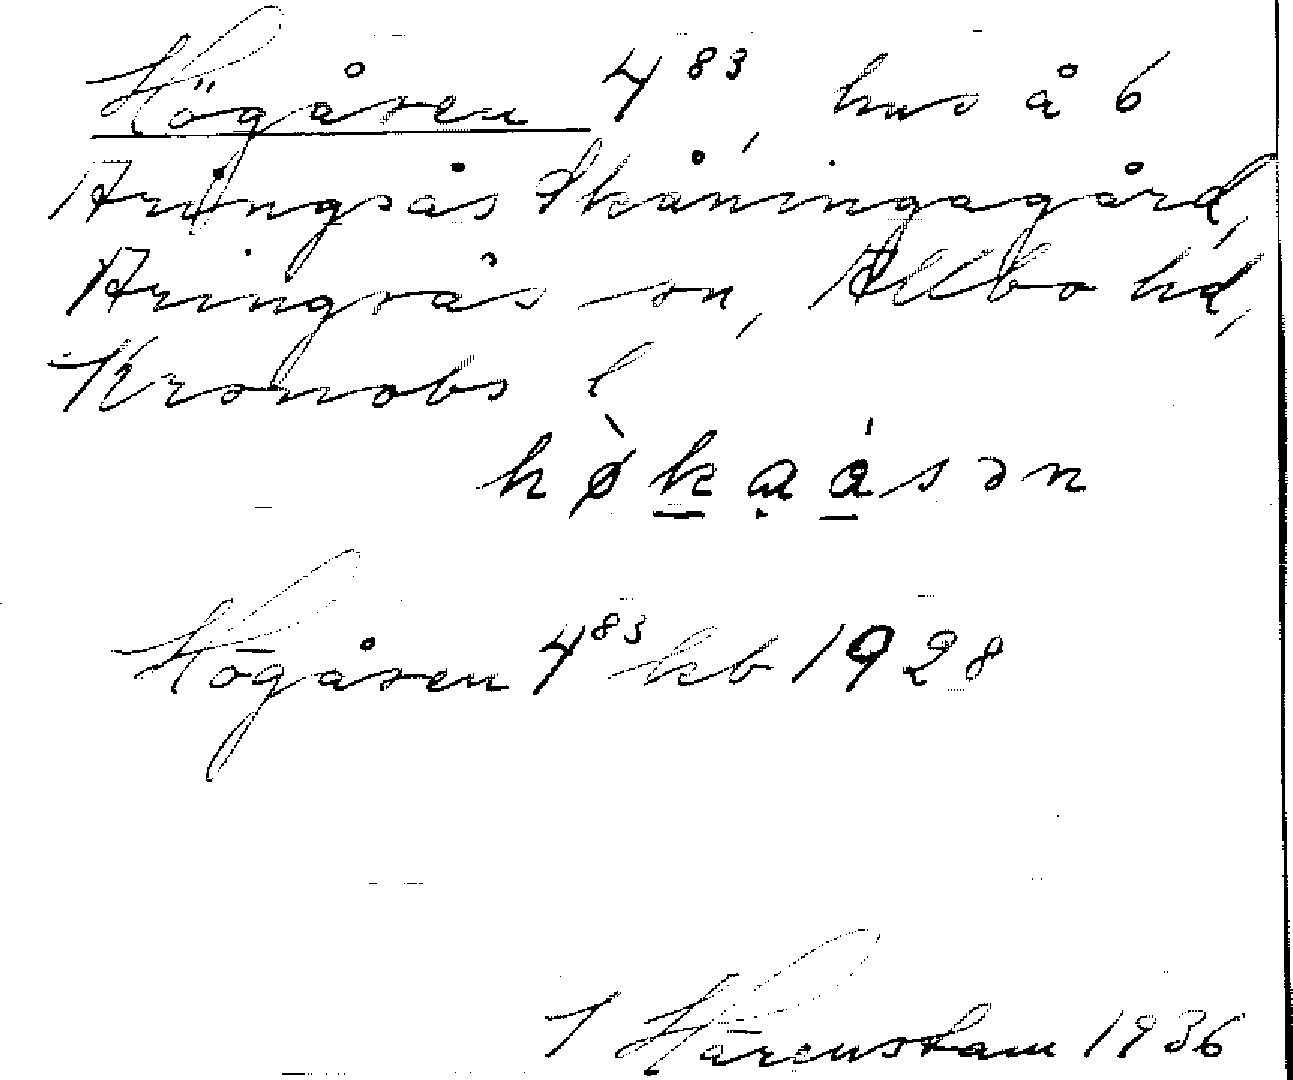 Högåsen 4⁸³, hus å 6
Aringsås Skåningagård,
Aringsås sn, Allbo hd,
Kronobs l
hø̀kaásən
Högåsen 4⁸³ kb 1928
I Härenstam 1936